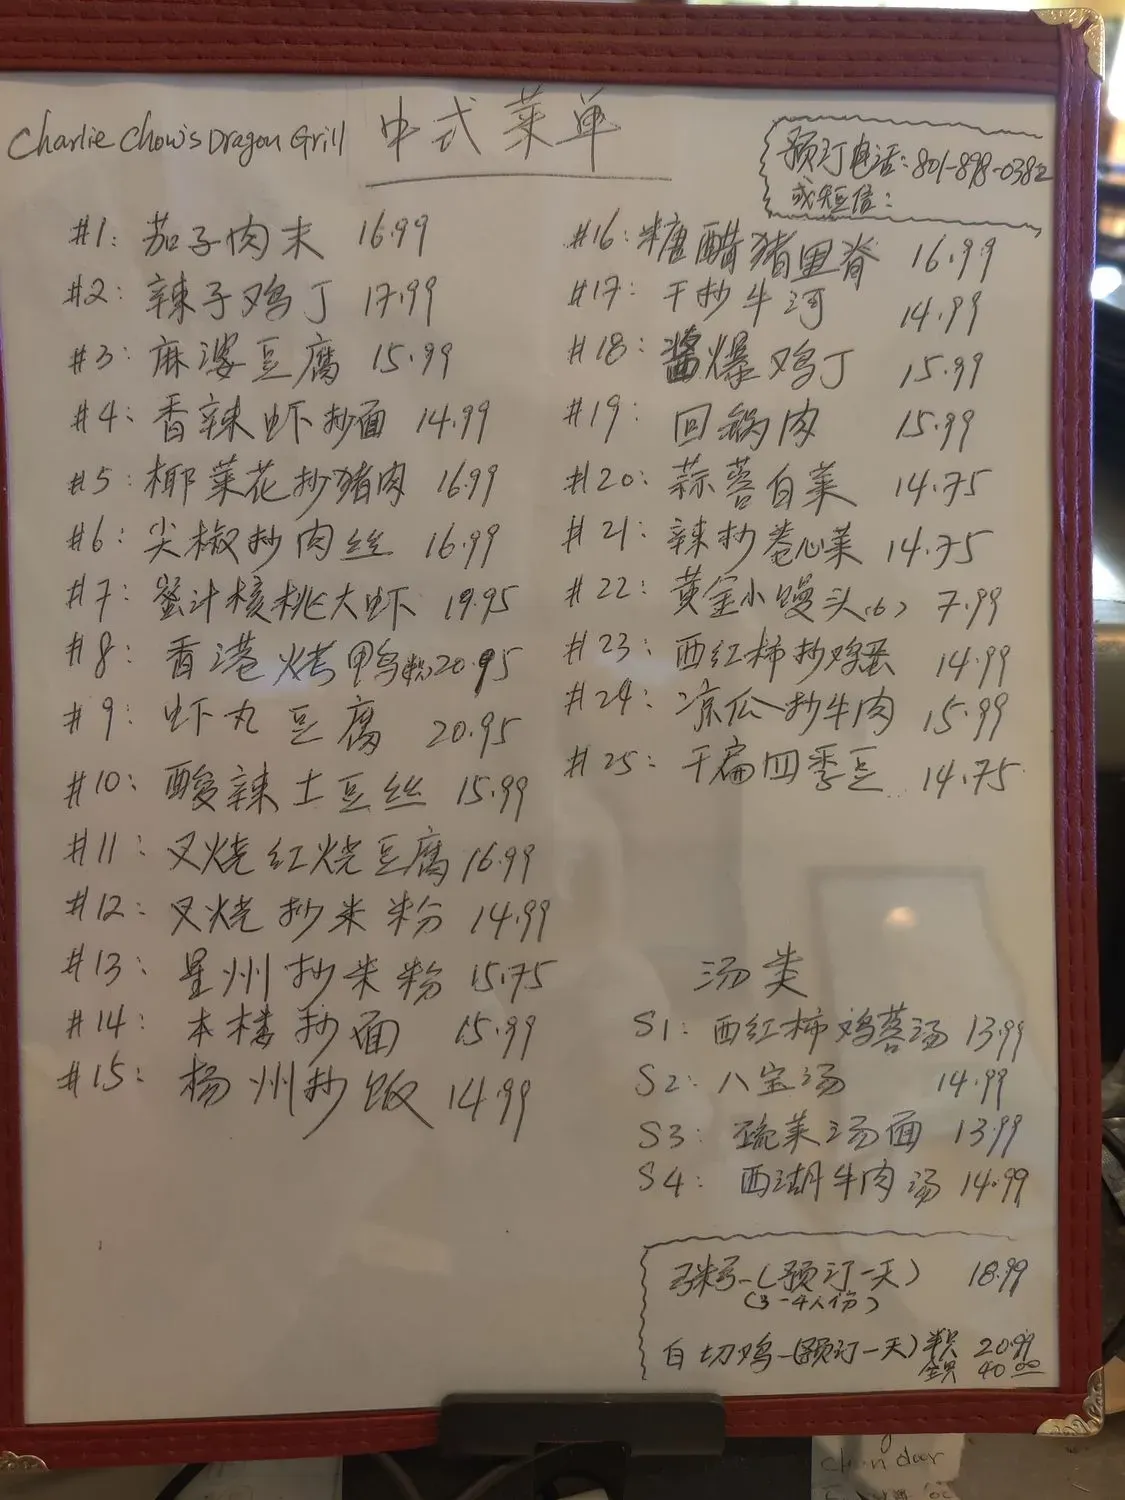 Charlie Chow's Dragon Grill 中式菜单
预订电话:801-898-0382
或短信:
#1: 茄子肉末 16.99
#2: 辣子鸡丁 17.99
#3: 麻婆豆腐 15.99
#4: 香辣虾抄面 14.99
#5: 椰菜花抄猪肉 16.99
#6: 尖椒抄肉丝 16.99
#7: 蜜汁核桃大虾 19.95
#8: 香港烤鸭 20.95
#9: 虾丸豆腐 20.95
#10: 酸辣土豆丝 15.99
#11: 叉烧红烧豆腐 16.99
#12: 叉烧抄米粉 14.99
#13: 星州抄米粉 15.75
#14: 本楼抄面 15.99
#15: 杨州抄饭 14.99
#16: 糖醋猪里脊 16.99
#17: 干抄牛河 14.99
#18: 酱爆鸡丁 15.99
#19: 回锅肉 15.99
#20: 蒜蓉白菜 14.75
#21: 辣抄卷心菜 14.75
#22: 黄金小馒头(6) 7.99
#23: 西红柿抄鸡蛋 14.99
#24: 凉瓜抄牛肉 15.99
#25: 干扁四季豆 14.75
汤类
S1: 西红柿鸡蓉汤 13.99
S2: 八宝汤 14.99
S3: 蔬菜汤面 13.99
S4: 西湖牛肉汤 14.99
粥-(预订一天) 18.99
(3-4人份)
白切鸡-(预订一天) 半只 20.99
全只 40.00